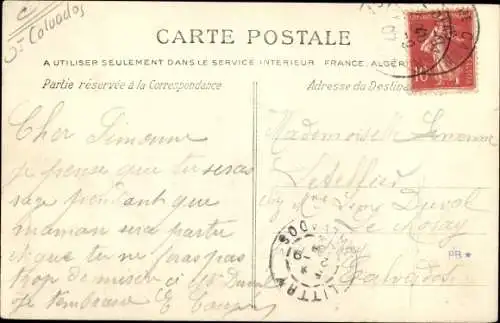 Calvados
CARTE POSTALE
A UTILISER SEULEMENT DANS LE SERVICE INTERIEUR FRANCE, ALGÉR
Partie réservée à la Correspondance
Adresse du Destina
10
Cher Simonne
je pense que tu seras
sage pendant que
maman sera partie
et que tu ne feras pas
trop de misère à
je t'embrasse E
Mademoiselle Simonne
Letellier
chez Mme Duval
Le
Calvados
LITTRY
PB*